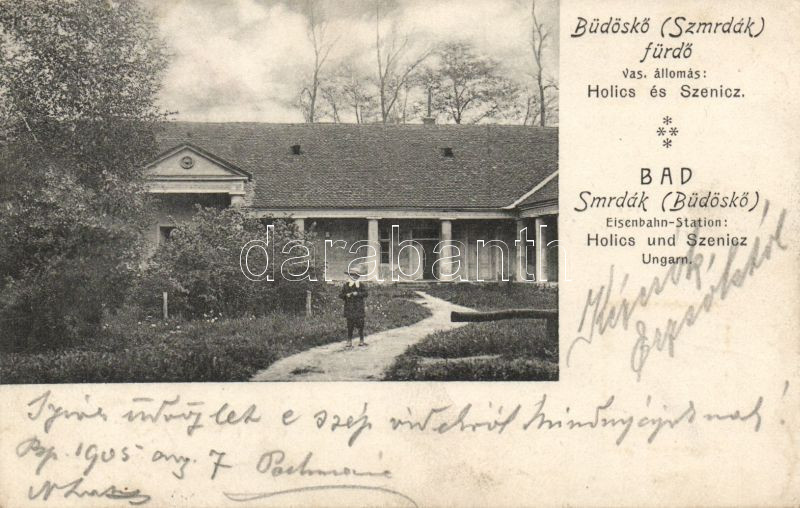 Büdöskő (Szmrdák)
fürdő
Vas. állomás:
Holics és Szenicz.
BAD
Smrdák (Büdöskő)
Eisenbahn-Station:
Holics und Szenicz
Ungarn.
darabanth
üdvözlet e szép vidékről Mindnyájuknak!
1905 aug. 7